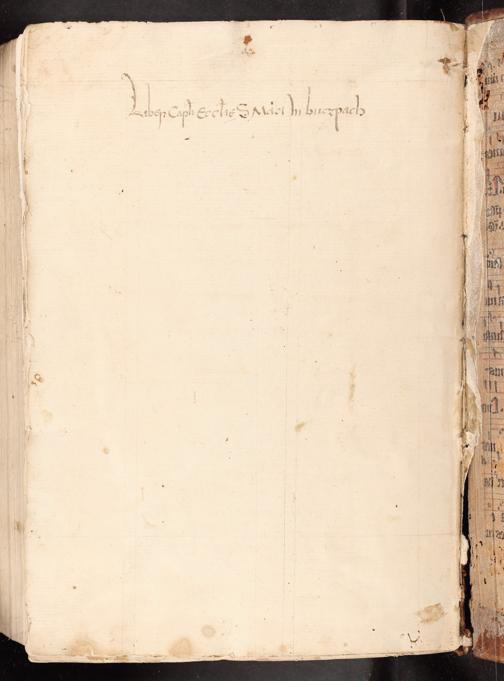 Liber Capli Ecclie S Marci In butzpach